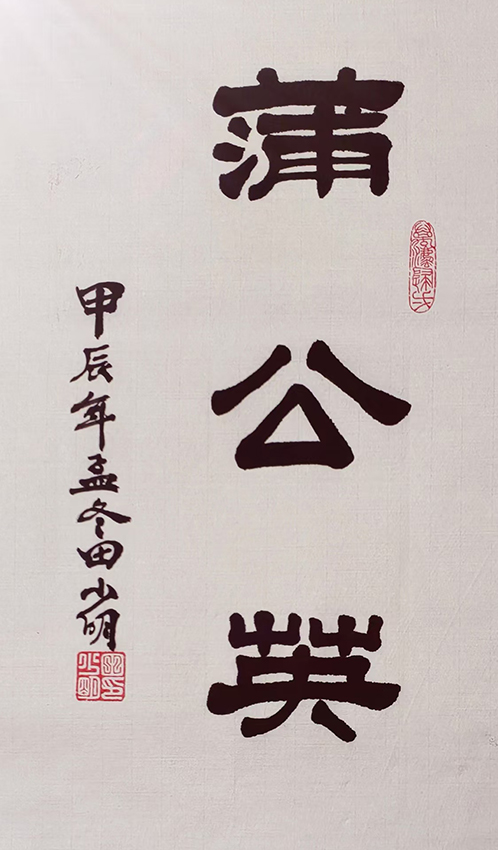 蒲公英
甲辰年孟冬田小明